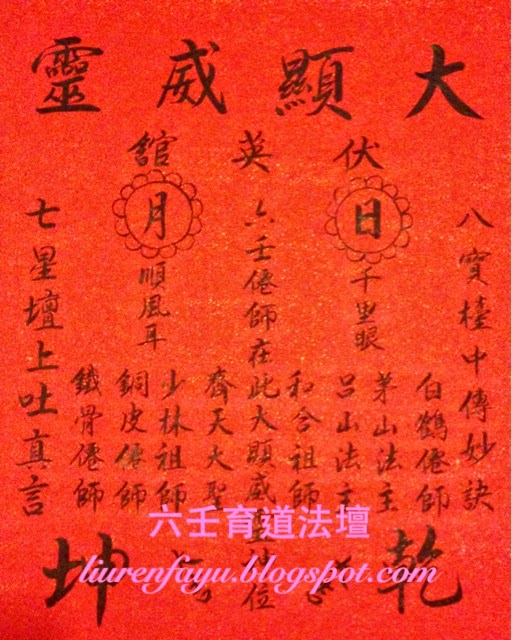 大顯威靈
伏英舘
八寶檯中傳妙訣
日
千里眼
白鶴僊師
茅山法主
呂山法主
和合祖師
六壬僊師在此大顯威靈神位
月
順風耳
齊天大聖
少林祖師
銅皮僊師
鐵骨僊師
七星壇上吐真言
乾
坤
六壬育道法壇
liurenfayu.blogspot.com